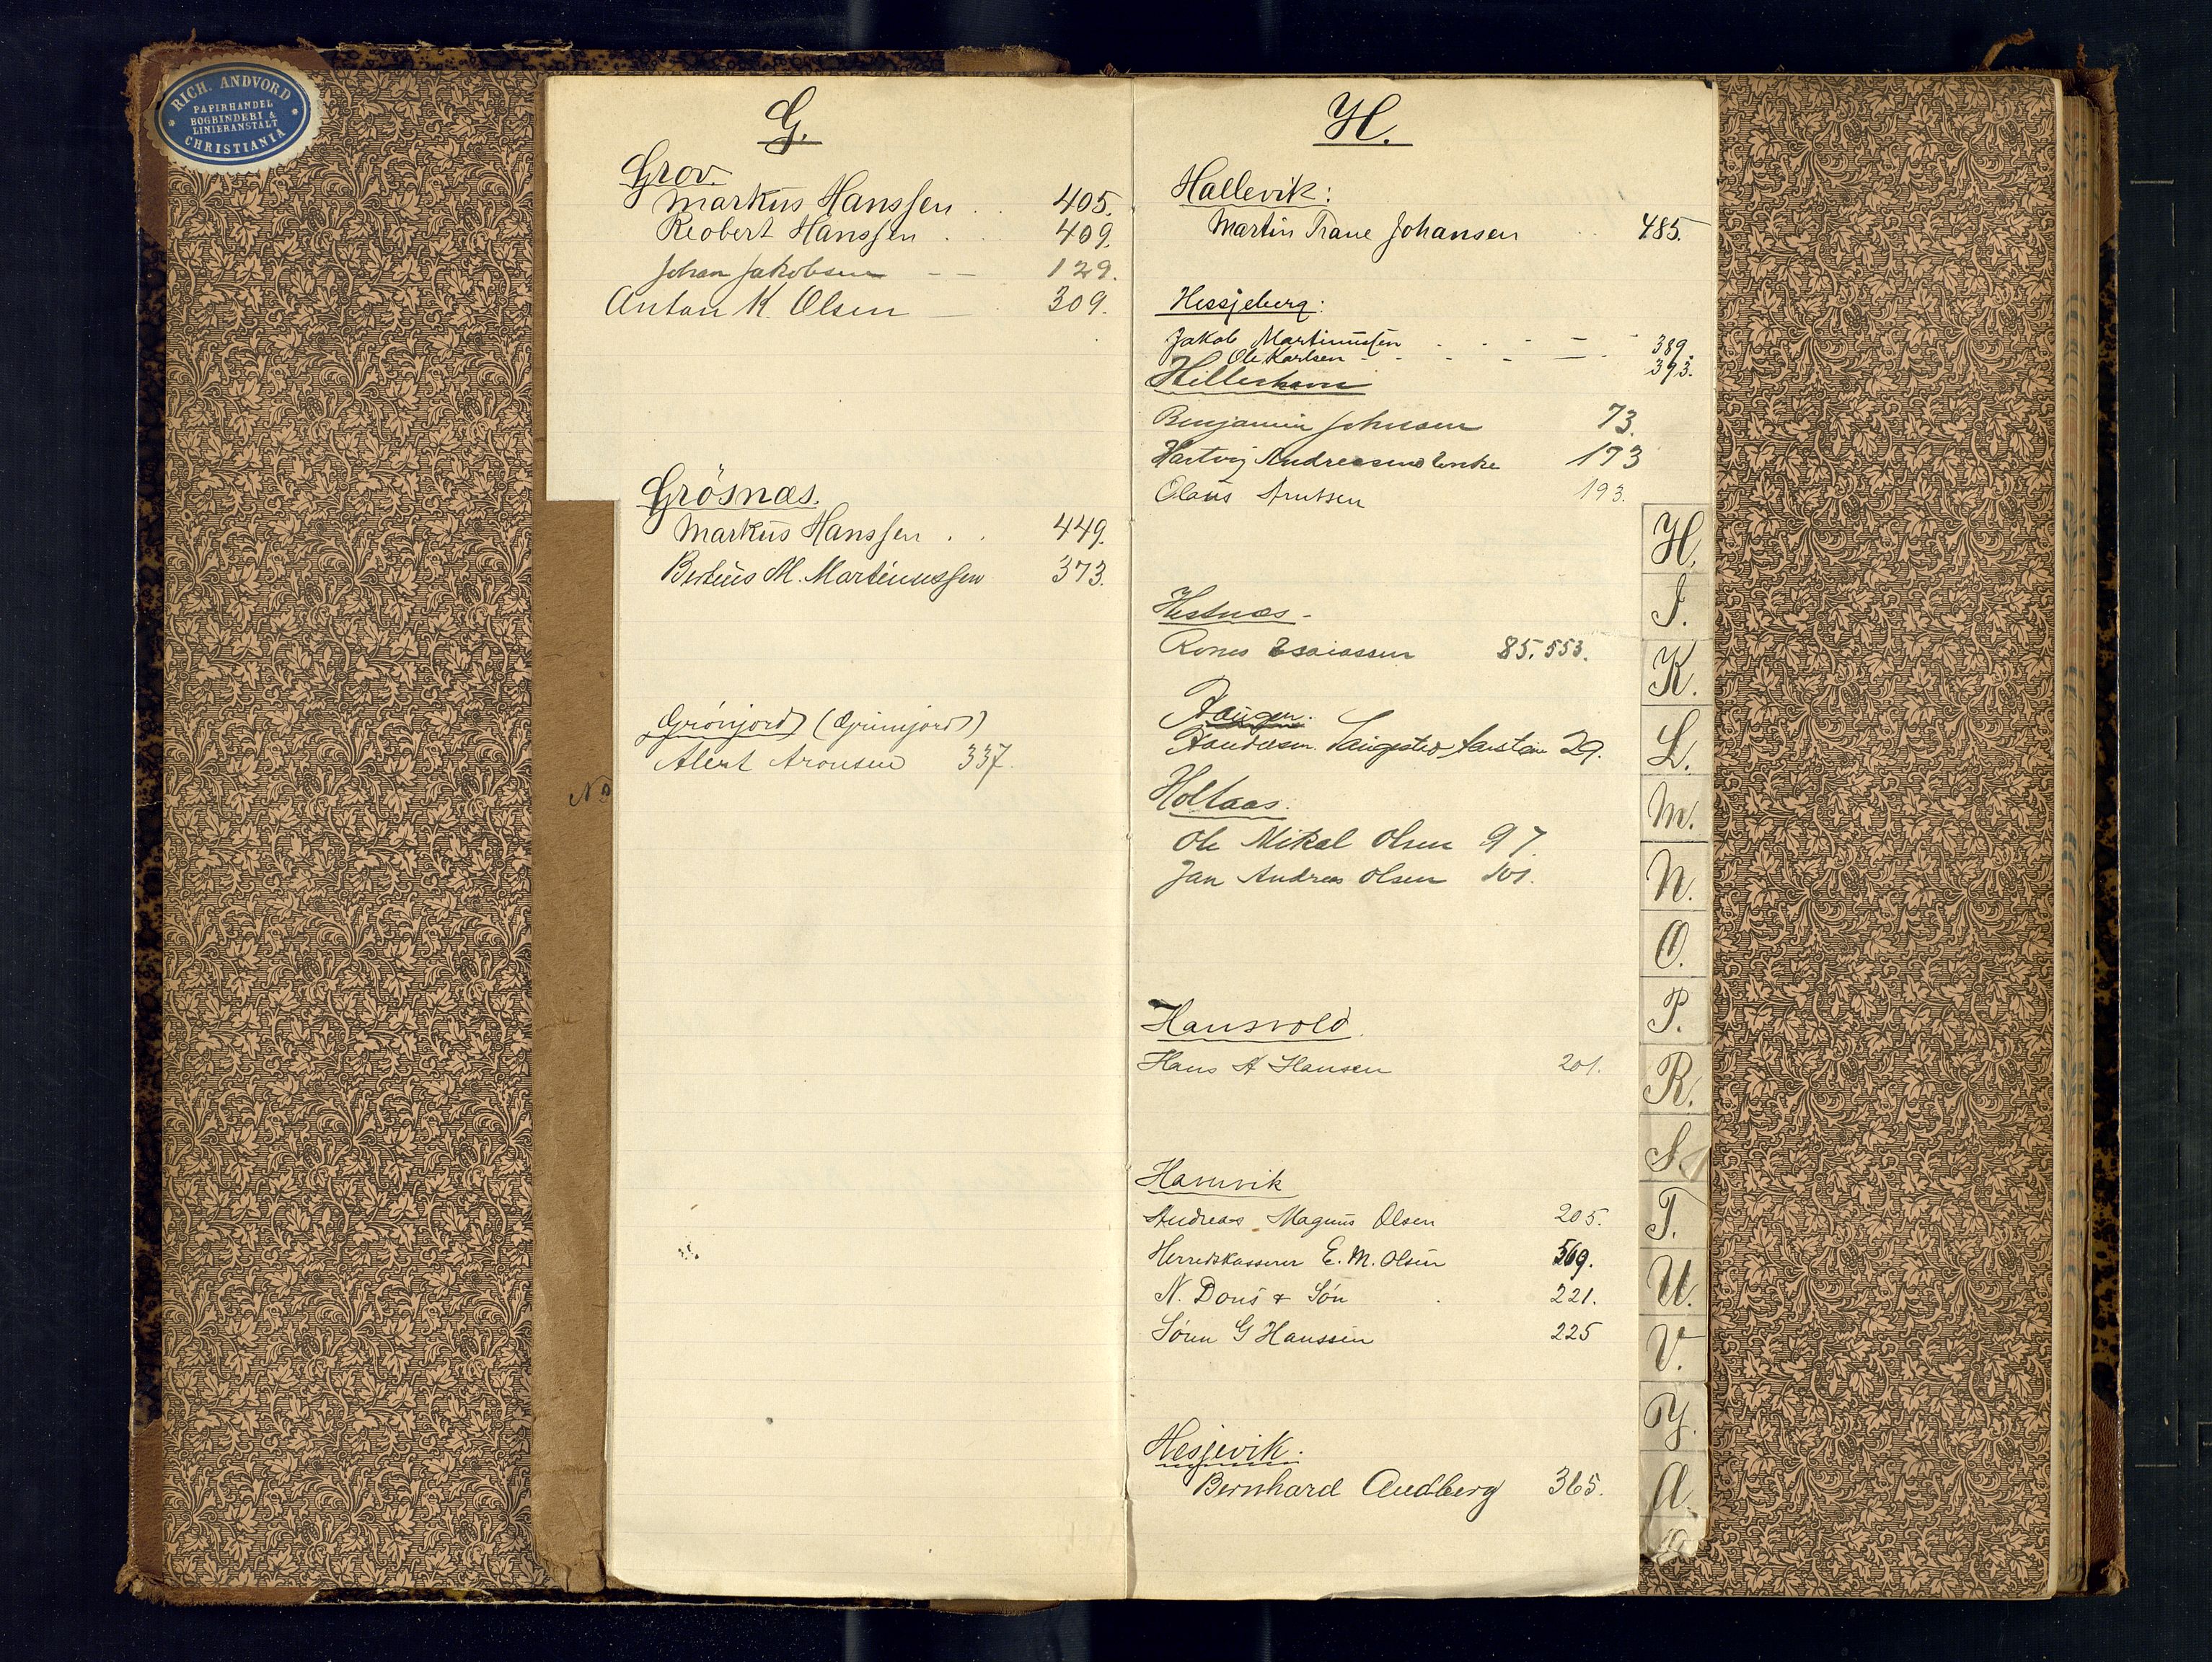 RICH. ANDVORD
PAPIRHANDEL
BOGBINDERI &
LINIERANSTALT
CHRISTIANIA
G.
Grov.
Markus Hanssen . . 405.
Reobert Hanssen . . 409.
Johan Jakobsen — — 129.
Anton K. Olsen — 309.
Grösnæs.
Markus Hanssen . . 449.
Berteus M. Martinussen 373.
Grönjord (Grimjord)
Alert Aronsen 337.
H.
Hallevik:
Martin Trane Johansen . . 485.
Hessjeberg:
Jakob Martinussen . . . — . 389.
Ole Karlsen . . . . — . 393.
Hilleshavn
Benjamin Johnsen 73.
Hartvig Andreasens Enke 173
Olaus Arntsen 193.
Hestnæs.
Rones Esaiassen 85. 553.
Haugen.
29.
Holtaas.
Ole Mikal Olsen 97.
Jan Andreas Olsen 101.
Hansvold.
Hans A Hansen 201.
Hamvik
Andreas Magnus Olsen 205.
Herredskasserer E. M. Olsen 569.
N. Dous & Sön . 221.
Sören G Hanssen 225
Hesjevik.
Bernhard Audberg 365.
H.
I.
K.
L.
M.
N.
O.
P.
R.
S.
T.
U.
V.
Y.